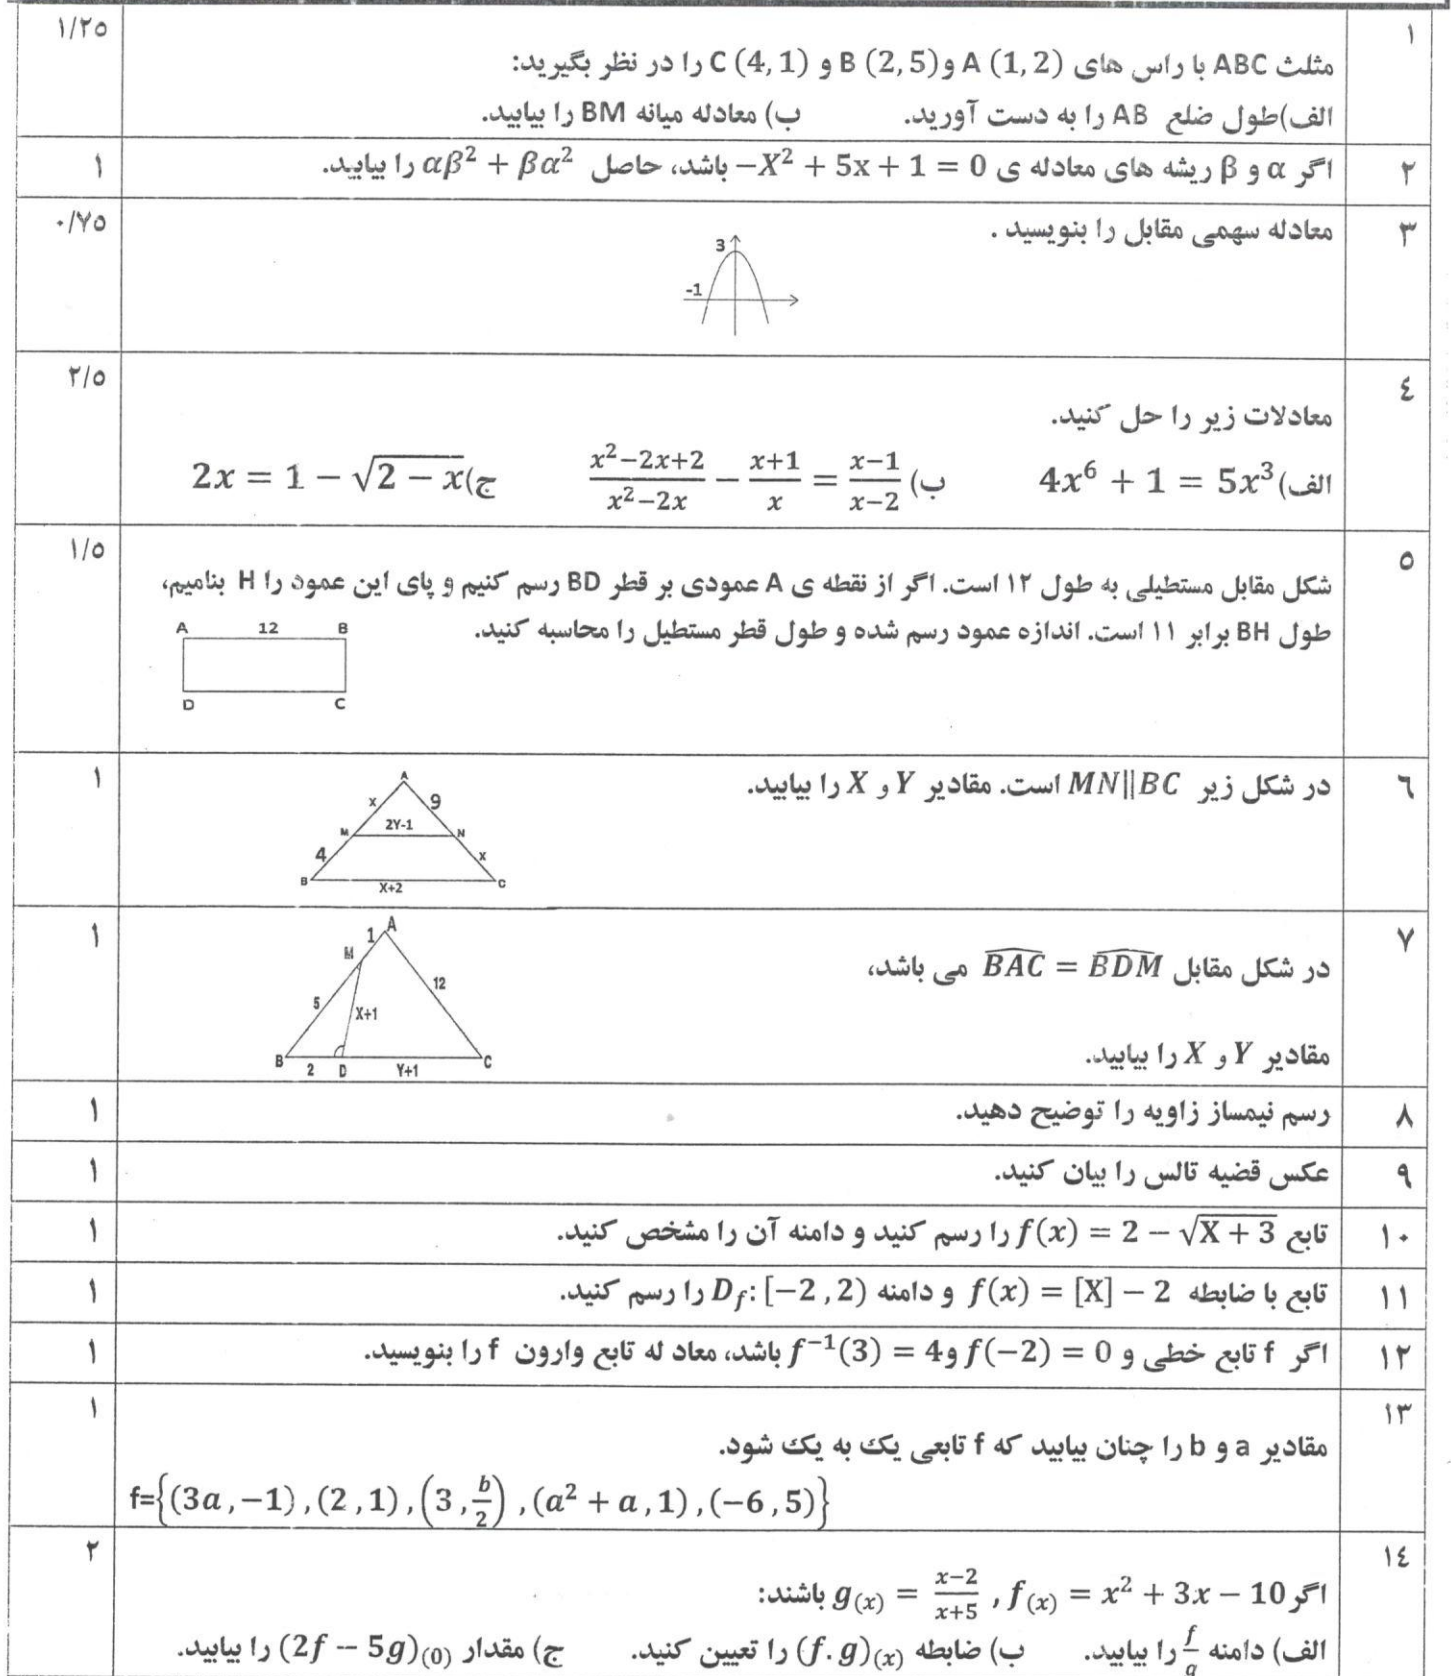 ۱ ۱/۲۵
مثلث ABC با راس های A (1, 2) و B (2, 5) و C (4, 1) را در نظر بگیرید:
الف)طول ضلع AB را به دست آورید. ب) معادله میانه BM را بیابید.
۲ اگر α و β ریشه های معادله ی −X² + 5x + 1 = 0 باشد، حاصل αβ² + βα² را بیابید. ۱
۳ معادله سهمی مقابل را بنویسید . ۰/۷۵
3
-1
۴ ۲/۵
معادلات زیر را حل کنید.
الف) 4x⁶ + 1 = 5x³ ب) (x²−2x+2)/(x²−2x) − (x+1)/x = (x−1)/(x−2) ج) 2x = 1 − √(2 − x)
۵ ۱/۵
شکل مقابل مستطیلی به طول ۱۲ است. اگر از نقطه ی A عمودی بر قطر BD رسم کنیم و پای این عمود را H بنامیم،
طول BH برابر ۱۱ است. اندازه عمود رسم شده و طول قطر مستطیل را محاسبه کنید.
A 12 B
D C
۶ در شکل زیر MN||BC است. مقادیر Y و X را بیابید. ۱
A
x 9
M 2Y-1 N
4 x
B X+2 C
۷ ۱
در شکل مقابل BAC = BDM می باشد،
مقادیر Y و X را بیابید.
1 A
M
5 X+1 12
B 2 D Y+1 C
۸ رسم نیمساز زاویه را توضیح دهید. ۱
۹ عکس قضیه تالس را بیان کنید. ۱
۱۰ تابع f(x) = 2 − √(X + 3) را رسم کنید و دامنه آن را مشخص کنید. ۱
۱۱ تابع با ضابطه f(x) = [X] − 2 و دامنه D_f: [−2 , 2) را رسم کنید. ۱
۱۲ اگر f تابع خطی و f(−2) = 0 و f⁻¹(3) = 4 باشد، معاد له تابع وارون f را بنویسید. ۱
۱۳ ۱
مقادیر a و b را چنان بیابید که f تابعی یک به یک شود.
f={(3a , −1) , (2 , 1) , (3 , b/2) , (a² + a , 1) , (−6 , 5)}
۱۴ ۲
اگر f(x) = x² + 3x − 10 , g(x) = (x−2)/(x+5) باشند:
الف) دامنه f/g را بیابید. ب) ضابطه (f. g)(x) را تعیین کنید. ج) مقدار (2f − 5g)(0) را بیابید.